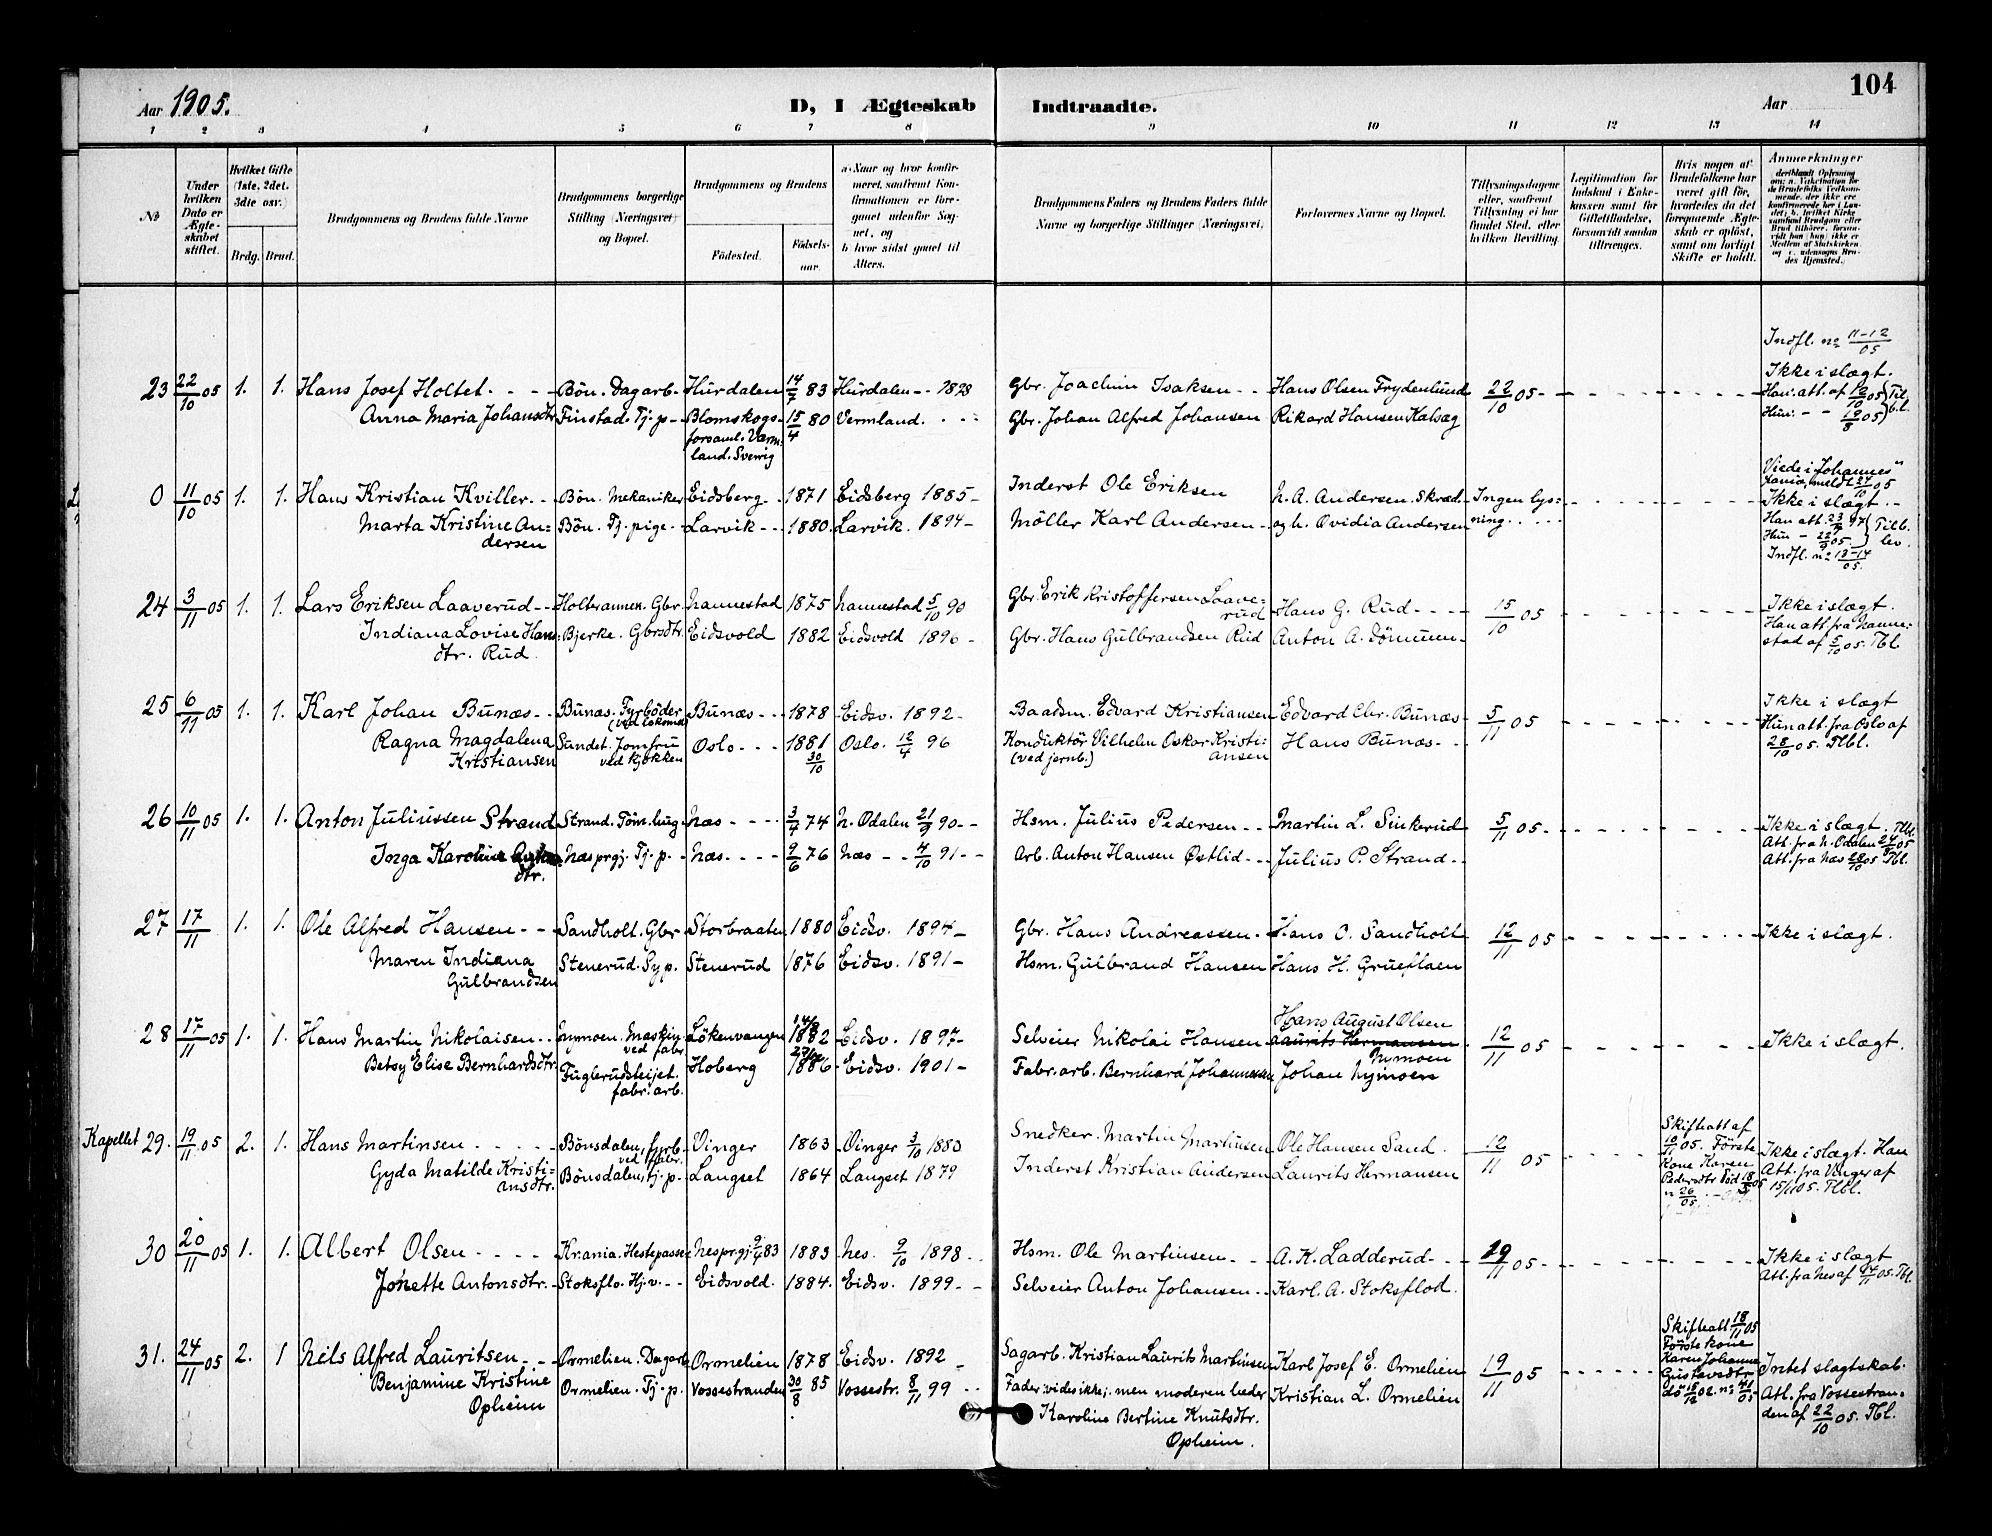 104
Aar 1905. D, I Ægteskab Indtraadte. Aar
1 2 3 4 5 6 7 8 9 10 11 12 13 14
No
Under hvilken Dato er Ægteskabet stiftet.
Hvilket Gifte (1ste, 2det, 3die osv.)
Brdg. Brud.
Brudgommens og Brudens fulde Navne
Brudgommens borgerlige Stilling (Næringsvei) og Bopæl.
Brudgommens og Brudens
Födested. Födselsaar.
a. Naar og hvor konfirmeret, saafremt Konfirmationen er foregaaet udenfor Sognet, og
b. hvor sidst gaaet til Alters.
Brudgommens Faders og Brudens Faders fulde Navne og borgerlige Stillinger (Næringsvei)
Forlovernes Navne og Bopæl.
Tillysningsdagene eller, saafremt Tillysning ei har fundet Sted, efter hvilken Bevilling.
Legitimation for Indskud i Enkekassen samt for Giftetilladelse, forsaavidt saadan tiltrænges.
Hvis nogen af Brudefolkene har været gift før, hvorledes da det foregaaende Ægteskab er opløst, samt om lovligt Skifte er holdt.
Anmerkninger
Indfl. no 11-12/05
23 22/10 05 1. 1. Hans Josef Holtet Bön. Dagarb. Hurdalen 14/7 83 Hurdalen 1898 Gbr. Joachim Isaksen Hans Olsen Frydenlund 22/10 05 Ikke i slægt.
Anna Maria Johansdtr Finstad. Tj. p. Blomskogs forsaml. Vermland. Sverrig 15/4 80 Vermland. Gbr. Johan Alfred Johansen Rikard Hansen Kalsæg Han: att. af 12/10 05 Hun: 19/8 05
0 11/10 05 1. 1. Hans Kristian Kviller Bön. Mekaniker Eidsberg 1871 Eidsberg 1885 Inderst Ole Eriksen N. A. Andersen. Skræd. Ingen lysning Viede i Johannes
Ikke i slægt.
Marta Kristine Andersen Bön. Tj. pige Larvik 1880 Larvik. 1894 Möller Karl Andersen og h. Ovidia Andersen Han att. 23/9 97 Hun 22/9 05. Tilb. lev.
Indfl. no 13-14/05.
24 3/11 05 1. 1. Lars Eriksen Laaverud Holbrannen. Gbr. Nannestad 1875 Nannestad 5/10 90 Gbr. Erik Kristoffersen Laaverud Hans G. Rud 15/10 05 Ikke i slægt.
Indiana Lovise Hansdtr. Rud Bjerke. Gbrsdtr. Eidsvold 1882 Eidsvold 1896 Gbr. Hans Gulbrandsen Rud Anton A. Dömuen Han att fra Nannestad af 5/10 05. Tbl.
25 6/11 05 1. 1. Karl Johan Bunæs Bunæs. Fyrböder (ved lokomo.) Bunæs 1878 Eidsv. 1892 Baadsm. Edvard Kristiansen Edvard Chr. Bunæs 5/11 05 Ikke i slægt
Ragna Magdalena Kristiansen Sundet. Jomfru ved kjökken Oslo 1881 30/10 Oslo. 12/4 96 Konduktör Vilhelm Oskar Kristiansen (ved jernb.) Hans Bunæs Hun att. fra Oslo af 25/10 05. Tlbl.
26 10/11 05 1. 1. Anton Juliussen Strand Strand. Töm. hug. Næs 3/4 74 N. Odalen 21/9 90 Hsm. Julius Pedersen Martin L. Sinkerud 5/11 05 Ikke i slægt. Tlbl.
Inga Karoline dtr. Næs prgj. Tj. p. Næs 9/6 76 Næs 4/10 91 Arb. Anton Hansen Østlid Julius P. Strand Att. fra N. Odalen 24/8 05
Att. fra Næs 28/10 05 Tbl.
27 17/11 1. 1. Ole Alfred Hansen Sandholt. Gbr Storbraaten 1880 Eidsv. 1894 Gbr. Hans Andreassen Hans O. Sandholt 12/11 05 Ikke i slægt.
Maren Indiana Gulbrandsen Stenerud. Syp. Stenerud 1876 Eidsv. 1891 Hsm. Gulbrand Hansen Hans H. Grueflaen
28 17/11 05 1. 1. Hans Martin Nikolaisen Nymoen. Maskin. ved fabr. Lökenvangen 1882 Eidsv. 1897 Selveier Nikolai Hansen Hans August Olsen Nymoen 12/11 05 Ikke i slægt.
Betsy Elise Bernhardsdtr. Fuglerudsteijet. fabr. arb. Hoberg 1886 Eidsv. 1901 Fabr. arb. Bernhard Johannessen Johan Nymoen
Kapellet 29. 19/11 05 2. 1. Hans Martinsen Bönsdalen, fyrb. ved fabr. Vinger 1863 Vinger 3/10 1880 Snedker. Martin Martinsen Ole Hansen Sand 12/11 05 Skifteatt af 10/11 05. Förste Kone Karen Pedersdtr Ikke i slægt. Han
Gyda Matilde Kristiansdtr. Bönsdalen, tj. p. Langset 1864 Langset 1879 Inderst Kristian Andersen Laurits Hermansen Att. fra Vinger af 15/11 05. Tlbl.
30 20/11 05 1. 1. Albert Olsen Kr.ania. Hestepasser Nes prgj. 9/4 83 1883 Nes. 9/10 1898 Hsm. Ole Martinsen A. K. Ladderud 19/11 05 Ikke i slægt
Jonette Antonsdtr. Stoksflo. Hj. v. Eidsvold. 1884. Eidsv. 1899 Selveier Anton Johansen Karl. A. Stoksflod. Att. fra Nes af 14/11 05. Tbl
31. 24/11 05 2. 1 Nils Alfred Lauritsen Ormelien. Dagarb. Ormelien 1878 Eidsv. 1892 Sagarb. Kristian Laurits Martinsen Karl Josef E. Ormelien 19/11 05 Skifteatt 18/11 05 Förste kone Karen Johanne Gustavsdtr. dö 15/12 02. no 41/05 Intet slægtskab.
Benjamine Kristine Opheim Ormelien. Tj. p. Vossestranden 30/8 85 Vossestr. 8/11 99 Fader vides ikke; men moderen heder Kristian L. Ormelien Att. fra Vossestranden af 22/10 05. Tbl.
Karoline Bertine Knutsdtr. Opheim.